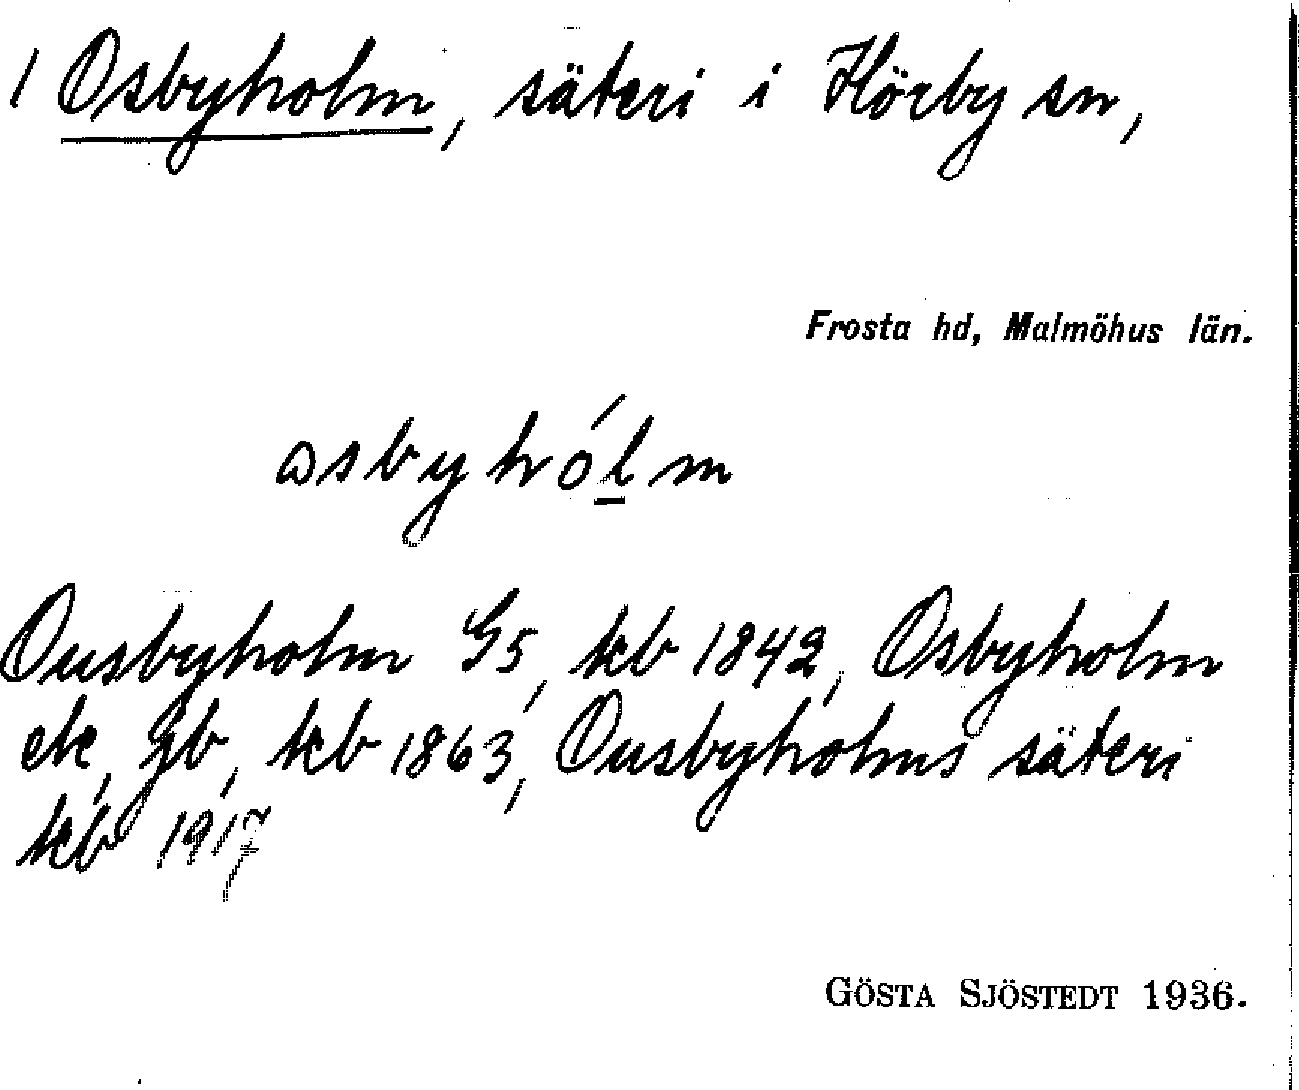 1 Osbyholm, säteri i Hörby sn,
Frosta hd, Malmöhus län.
osbyhólm
Ousbyholm G5, kb 1842, Osbyholm
ek, jb, kb 1863, Ousbyholms säteri
kb 1917
GÖSTA SJÖSTEDT 1936.